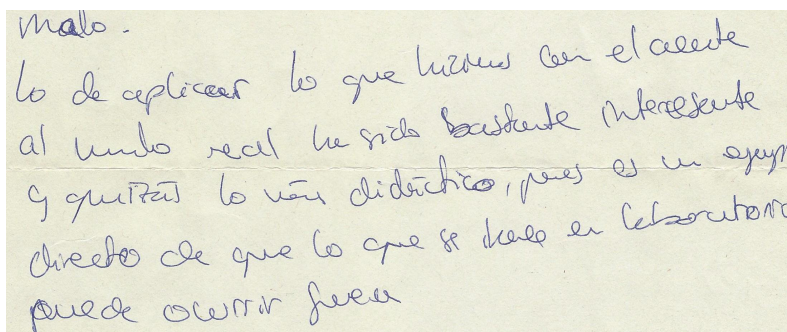 malo.
Lo de aplicar lo que hicimos con el aceite
al mundo real ha sido bastante interesante
y quizás lo más didáctico, pues es un ejemp
directo de que lo que se hace en laboratorio
puede ocurrir fuera